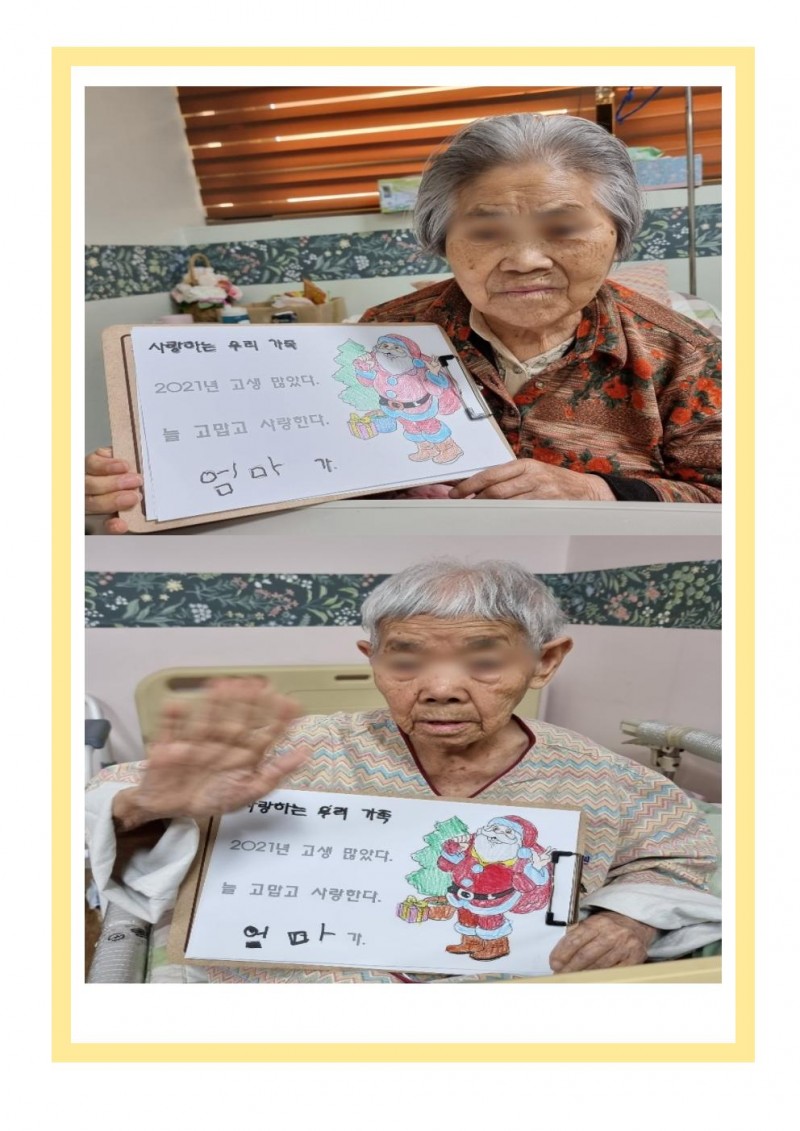 사랑하는 우리 가족
2021년 고생 많았다.
늘 고맙고 사랑한다.
엄마 가.
사랑하는 우리 가족
2021년 고생 많았다.
늘 고맙고 사랑한다.
엄마 가.